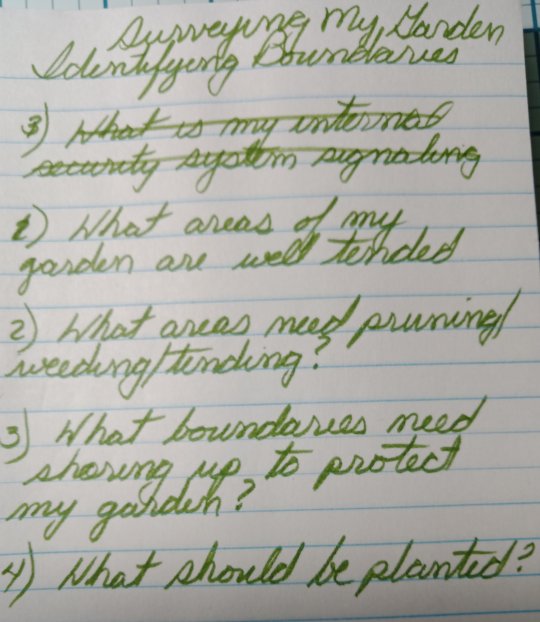 Surveying My Garden
Identifying Boundaries
3) What is my internal
security system signaling
1) What areas of my
garden are well tended
2) What areas need pruning/
weeding/tending?
3) What boundaries need
shoring up to protect
my garden?
4) What should be planted?